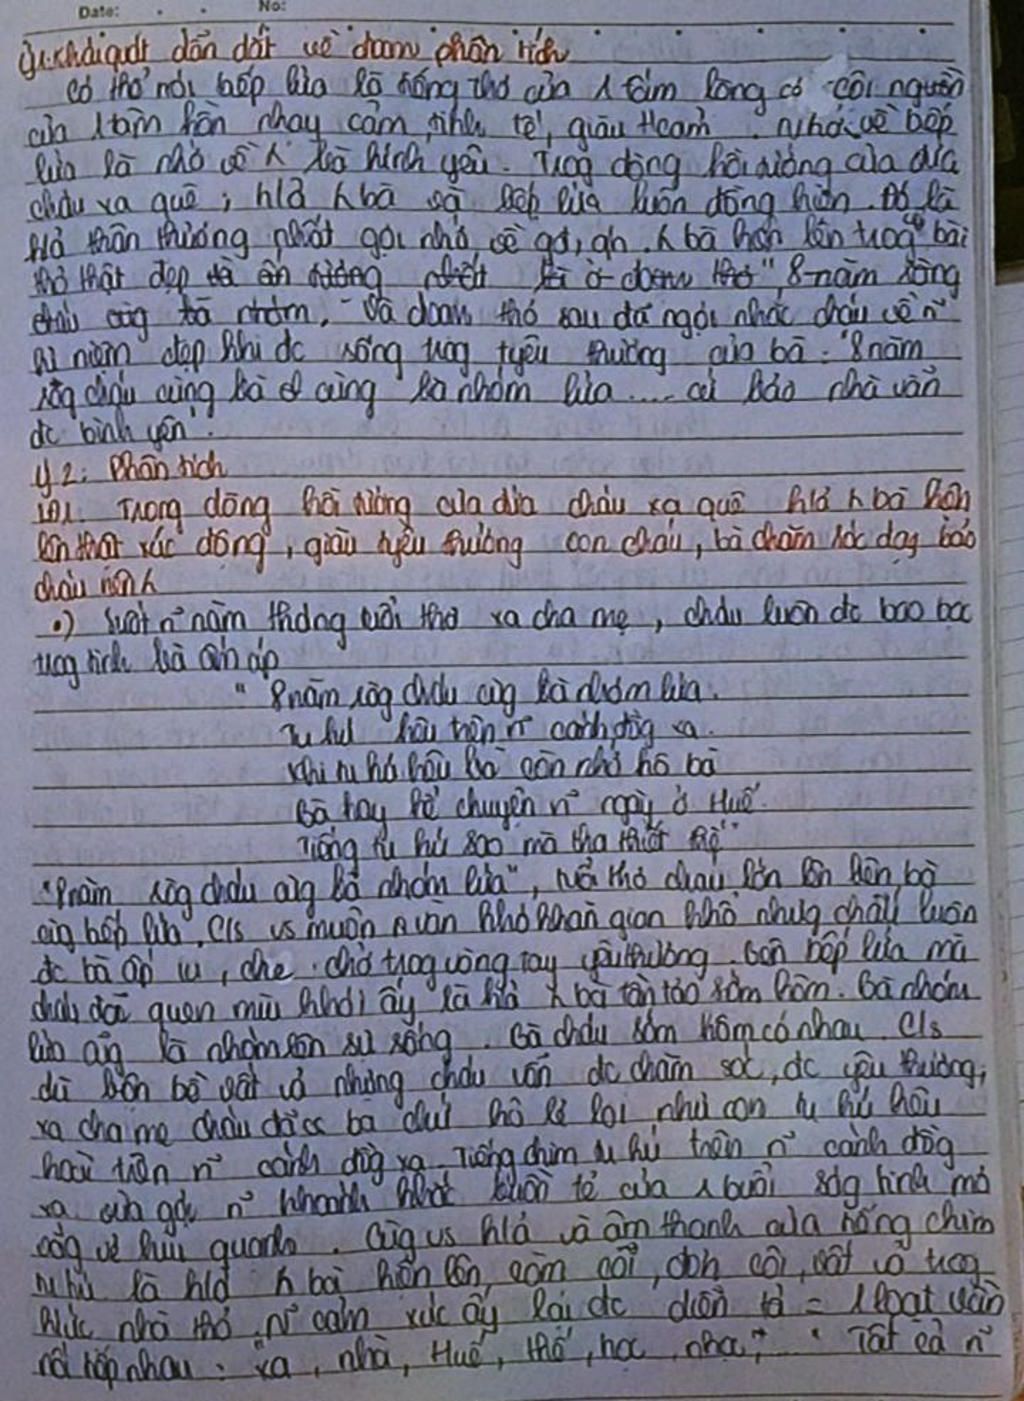 Date: No:
ý1. Khái quát dẫn dắt về đoạn phân tích
Có thể nói bếp lửa là tiếng thơ của 1 tấm lòng có cội nguồn
của 1 tâm hồn nhạy cảm, tinh tế, giàu t/cảm. Nhớ về bếp
lửa là nhớ về h/ bà kính yêu. Trog dòng hồi tưởng của đứa
cháu xa quê, h/ả h bà và bếp lửa luôn đồng hiện. Đó là
h/ả thân thương nhất gợi nhớ về gđ, h bà hiện lên trog bài
thơ thật đẹp và ấn tượng nhất là ở đoạn thơ "8 năm ròng
cháu cùg bà nhóm," và đoạn thơ sau đã ngợi nhắc cháu về n~
kỉ niệm đẹp khi đc sống trog tyêu thương của bà: "8 năm
ròg cháu cùng bà cùng bà nhóm lửa .... cứ bảo nhà vẫn
đc bình yên".
ý 2: Phân tích
Trong dòng hồi tưởng của đứa cháu xa quê h/ả h bà hiện
lên thật xúc động, giàu tyêu thương con cháu, bà chăm sóc dạy bảo
cháu
•) Suốt n~ năm tháng tuổi thơ xa cha mẹ, cháu luôn đc bao bọc
trog tình bà ấm áp
"8 năm ròg cháu cùg bà nhóm lửa.
Tu hú kêu trên n~ cánh đồg xa.
Khi tu hú kêu bà còn nhớ hô bà
Bà hay kể chuyện n~ ngày ở Huế.
Tiếng tu hú sao mà tha thiết thế"
"8 năm ròg cháu cùg bà nhóm lửa", tuổi thơ cháu lớn lên bên bà
cùg bếp lửa. C/s vs muôn vàn khó khăn gian khổ nhưg cháu luôn
đc bà ấp iu, che chở trog vòng tay yêu thương. Bên bếp lửa mà
cháu đã quen mùi khói ấy là h/ả h bà tần tảo sớm hôm. Bà nhóm
lửa cũg là nhóm lên sự sống. Bà cháu sớm hôm có nhau. C/s
dù bộn bề vất vả nhưng cháu vẫn đc chăm sóc, đc yêu thương,
xa cha mẹ cháu bà lẻ loi như con tu hú kêu
hoài trên n~ cánh đồg xa. Tiếng chim tu hú trên n~ cánh đồg
xa của 1 buổi ság tinh mơ
vắg vẻ hiu quạnh. Cùg vs h/ả và âm thanh của tiếng chim
tu hú là h/ả h bà hiện lên còm cõi, đơn côi, vất vả trog
kí ức nhà thơ. N~ cảm xúc ấy lại đc diễn tả = 1 loạt vần
nối tiếp nhau: "xa, nhà, Huế, thế, học, Tất cả n~